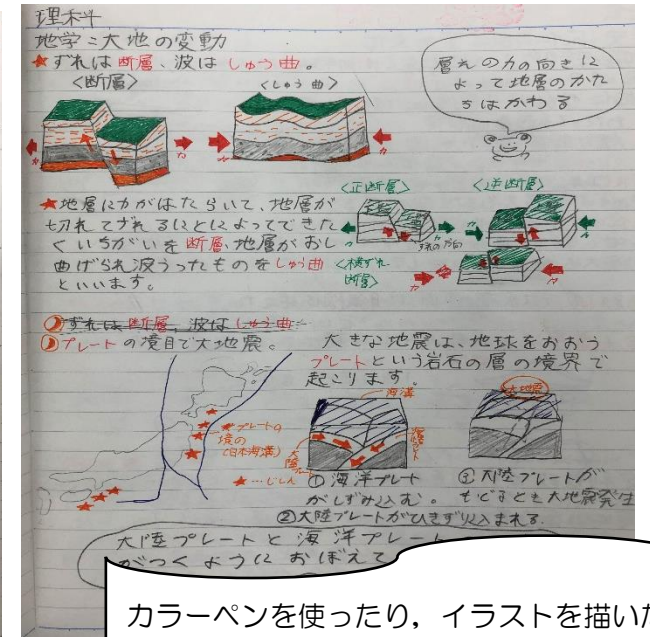 理科
地学：大地の変動
★ずれは断層、波はしゅう曲。
<断層>
<しゅう曲>
層れの力の向きに
よって地層のかた
ちはかわる
力
力
力
力
★地層に力がはたらいて、地層が
切れてずれることによってできた
くいちがいを断層、地層がおし
曲げられ波うったものをしゅう曲
といいます。
<正断層>
<逆断層>
<横ずれ
断層>
ずれは断層、波はしゅう曲
プレートの境目で大地震。
大きな地震は、地球をおおう
プレートという岩石の層の境界で
起こります。
プレートの
境の
(日本海溝)
★…じしん
海溝
大地震
①海洋プレート
がしずみ込む。
②大陸プレートがひきずり込まれる
③大陸プレートが
もどるとき大地震発生
大陸プレートと海洋プレート
がつくようにおぼえて
カラーペンを使ったり，イラストを描いた